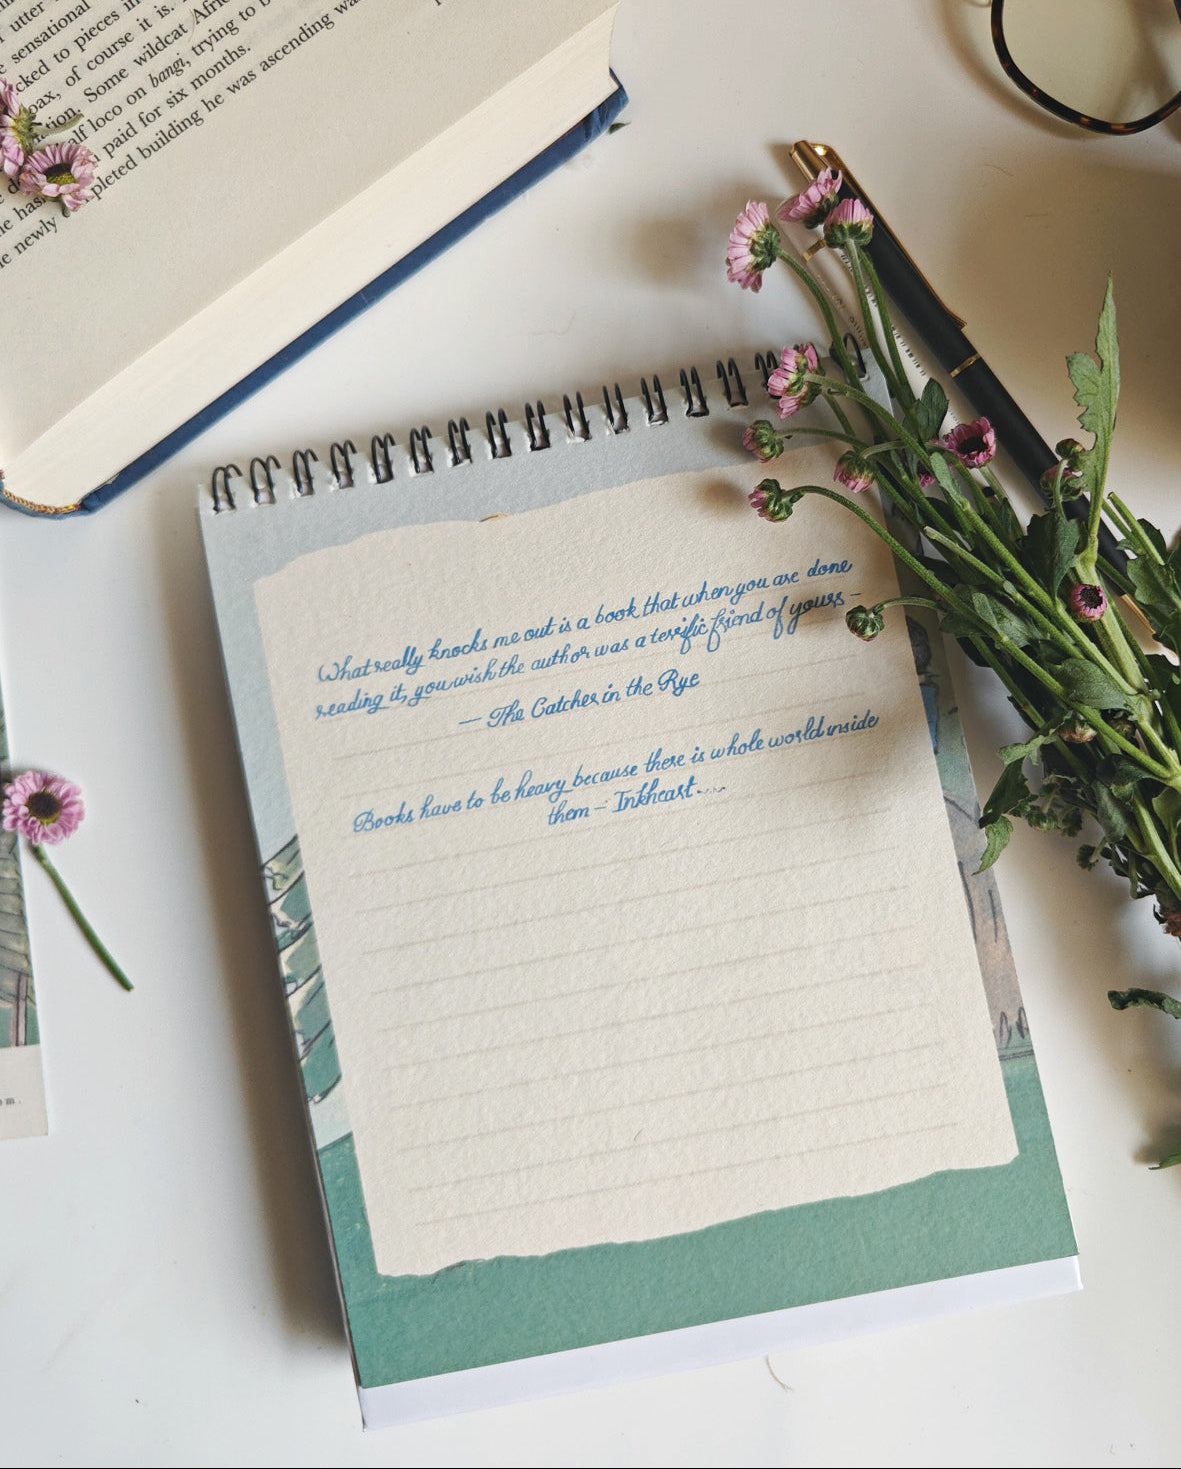 utter
sensational
cked to pieces in
oax, of course it is.
tion. Some wildcat Afri
alf loco on bangi, trying to b
paid for six months.
pleted building he was ascending wa
he newly
What really knocks me out is a book that when you are done
reading it, you wish the author was a terrific friend of yours –
— The Catcher in the Rye
Books have to be heavy because there is whole world inside
them – Inkheart....